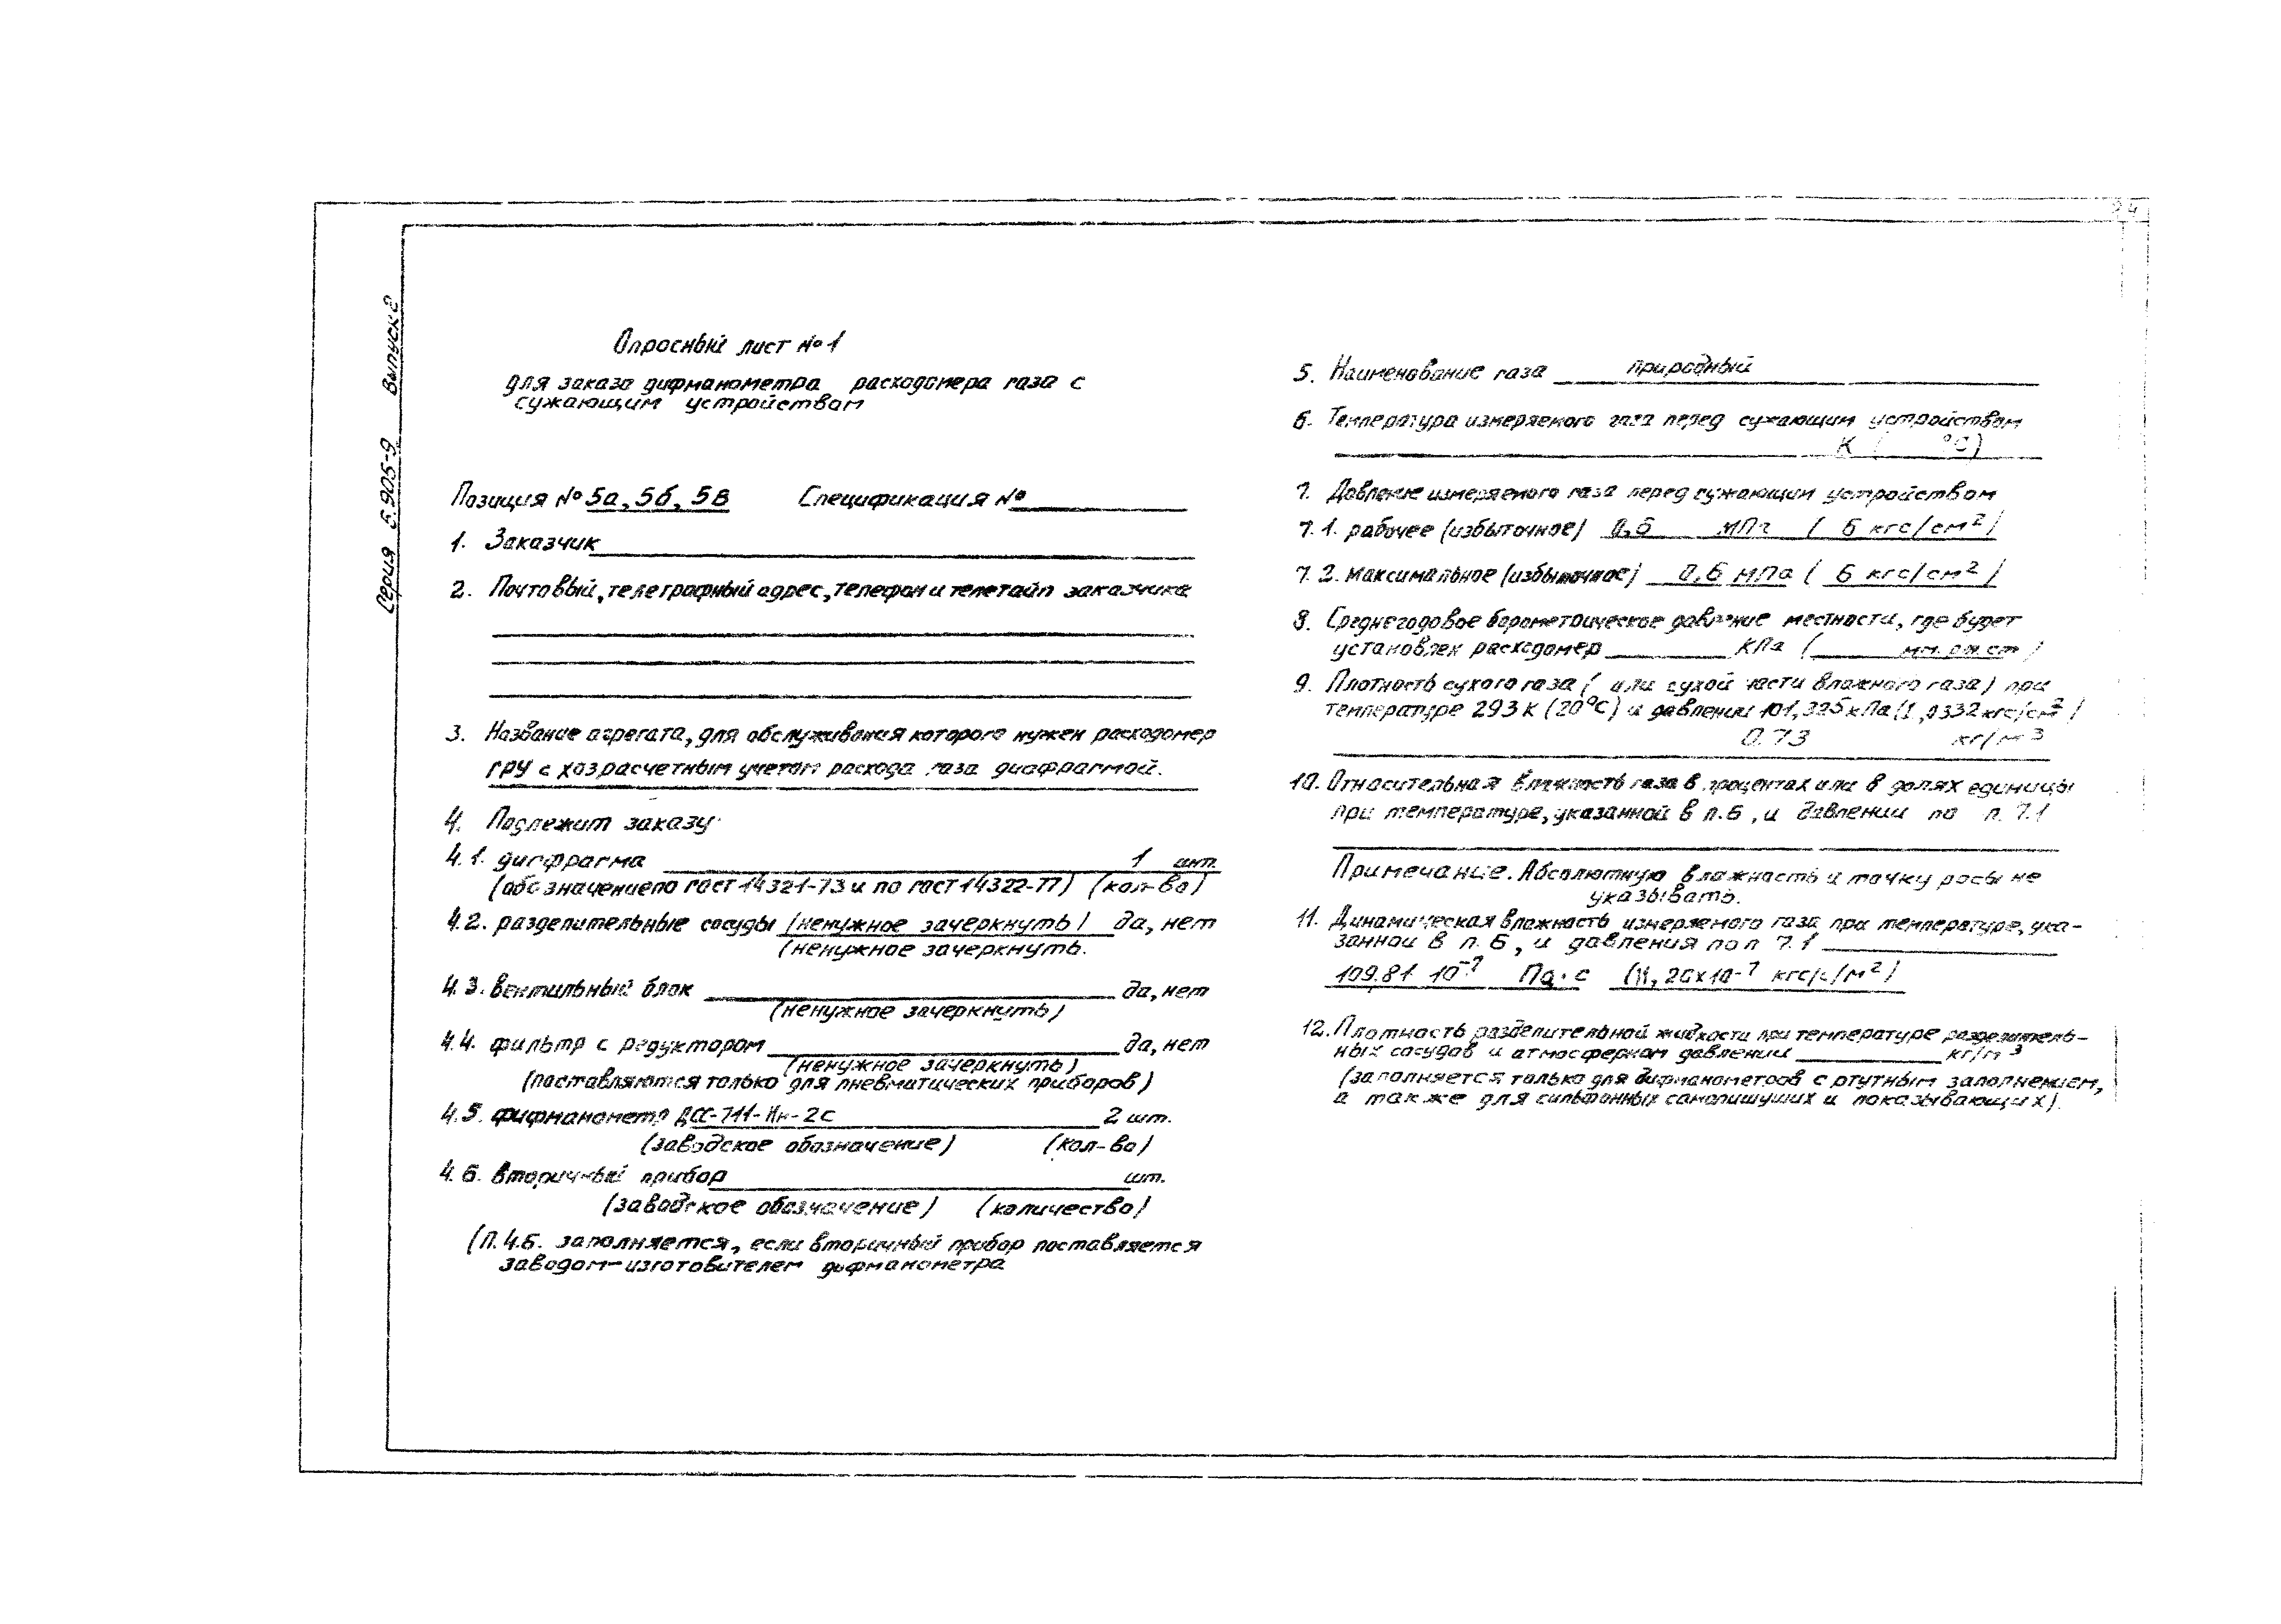 Серия 5.905-9 Выпуск 2
24
Опросный лист №1
для заказа дифманометра расходомера газа с
сужающим устройством
Позиция № 5а, 5б, 5в Спецификация №
1. Заказчик
2. Почтовый, телеграфный адрес, телефон и телетайп заказчика
3. Название агрегата, для обслуживания которого нужен расходомер
ГРУ с хозрасчетным учетом расхода газа диафрагмой.
4. Подлежит заказу:
4.1. диафрагма 1 шт.
(обозначение по гост 14321-73 и по гост 14322-77) (кол-во)
4.2. разделительные сосуды (ненужное зачеркнуть) да, нет
(ненужное зачеркнуть.
4.3. вентильный блок да, нет
(ненужное зачеркнуть)
4.4. фильтр с редуктором да, нет
(ненужное зачеркнуть)
(поставляются только для пневматических приборов)
4.5. фифманометр ДСС-711-Ин-2с 2 шт.
(заводское обозначение) (кол-во)
4.6. вторичный прибор шт.
(заводское обозначение) (количество)
(П.4.6. заполняется, если вторичный прибор поставляется
заводом-изготовителем дифманометра
5. Наименование газа природный
6. Температура измеряемого газа перед сужающим устройством
К ( °С)
7. Давление измеряемого газа перед сужающим устройством
7.1. рабочее (избыточное) 0,6 МПа ( 6 кгс/см²)
7.2. максимальное (избыточное) 0,6 МПа ( 6 кгс/см²)
8. Среднегодовое барометрическое давление местности, где будет
установлен расходомер КПа ( мм.рт.ст )
9. Плотность сухого газа ( или сухой части влажного газа) при
температуре 293К (20°С) и давлении 101,325 кПа (1,0332 кгс/см²)
0.73 кг/м³
10. Относительная влажность газа в процентах или в долях единицы
при температуре, указанной в п.6, и давлении по п. 7.1
Примечание. Абсолютную влажность и точку росы не
указывать.
11. Динамическая влажность измеряемого газа при температуре, ука-
занной в п. 6, и давления по п 7.1
109.81 10⁻⁷ Па·с (11,20х10⁻⁷ кгс/с/м²)
12. Плотность разделительной жидкости при температуре разделитель-
ных сосудов и атмосферном давлении кг/м³
(заполняется только для дифманометров с ртутным заполнением,
а также для сильфонных самопишущих и показывающих).